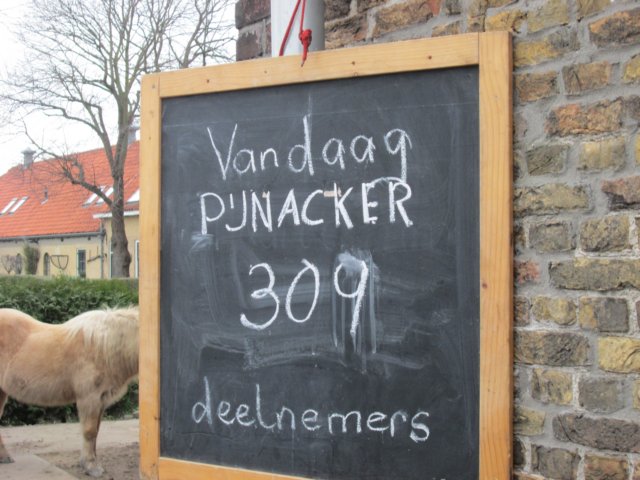 Vandaag
PIJNACKER
309
deelnemers